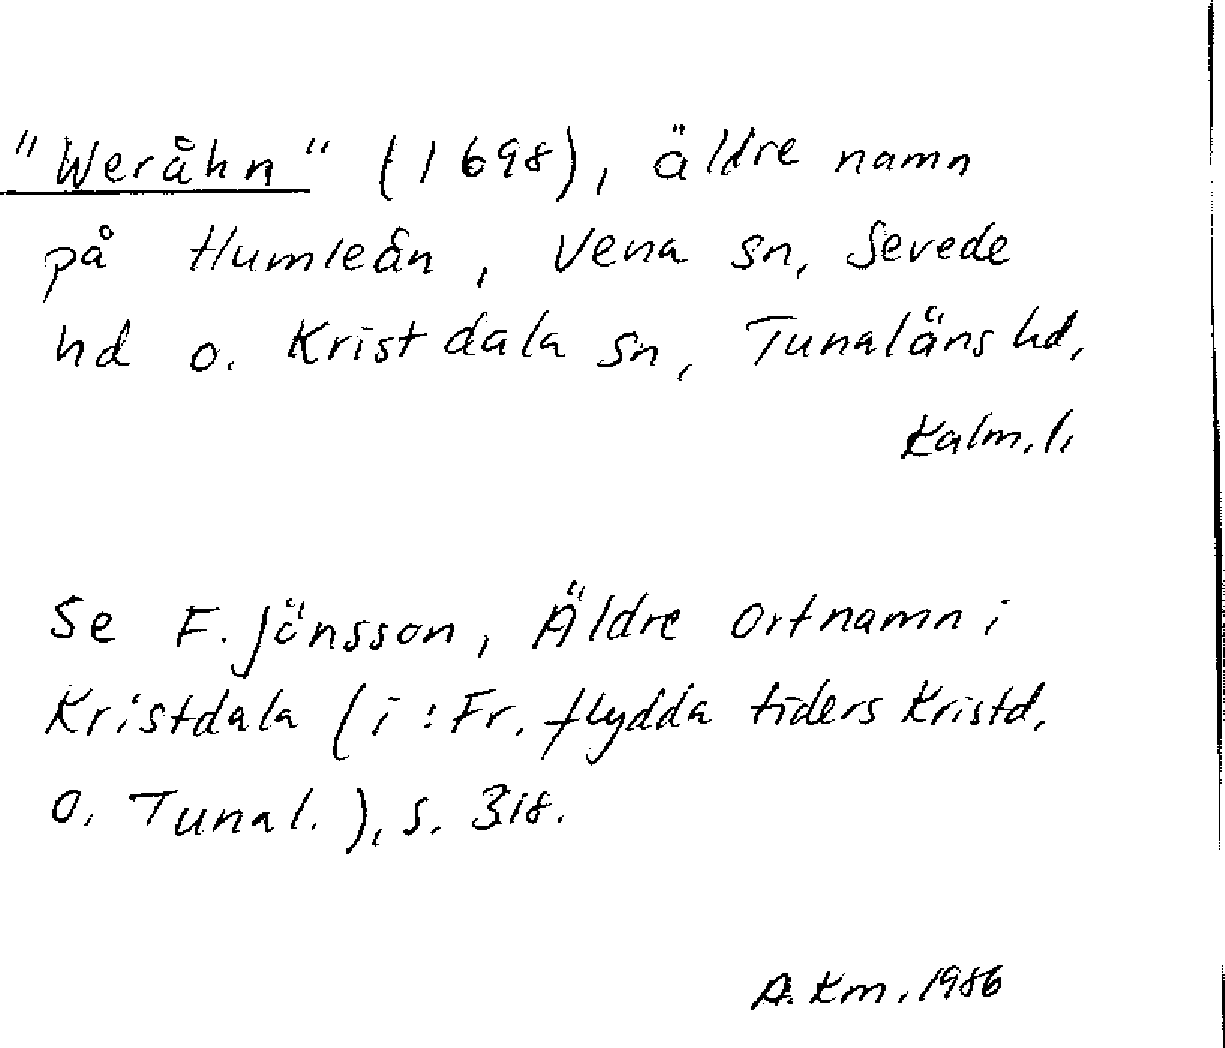 "Weråhn" (1698), äldre namn
på Humleån, Vena sn, Sevede
hd o. Kristdala sn, Tunaläns hd,
Kalm.l.
Se F. Jönsson, Äldre ortnamn i
Kristdala (i: Fr. flydda tiders Kristd.
o. Tunal.), s. 318.
A. Km. 1986